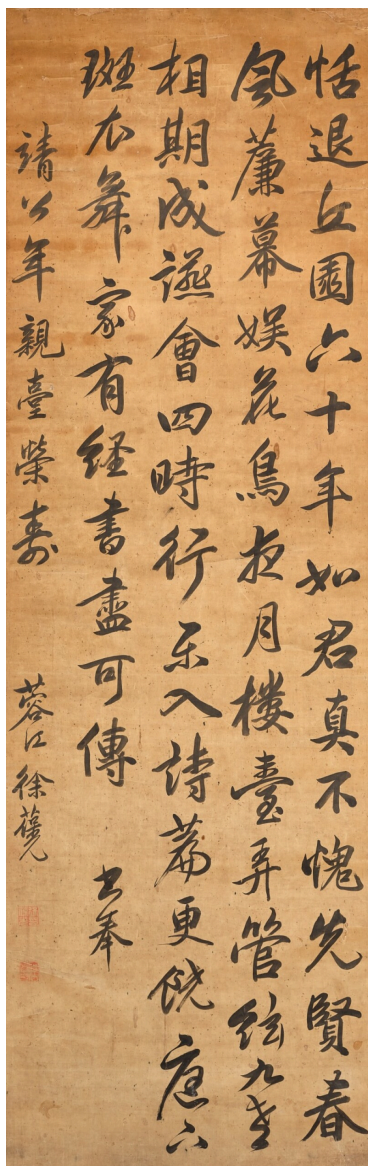 恬退丘園六十年如君真不愧先賢春
風簾幕娱花鳥夜月樓臺弄管絃九老
相期成讌會四時行樂入詩篇更饒庭下
斑衣舞家有經書盡可傳 書奉
靖公年親臺榮壽
蓉江徐葆光